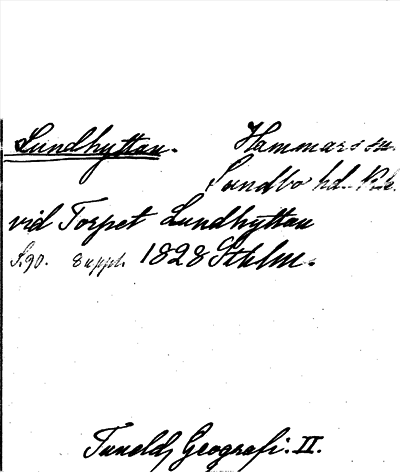 Lundhyttan. Hammars sn.
Sundbo hd. Kk.
vid Torpet Lundhyttan
S. 90. Suppl. 1828 Sthlm.
Tunelds Geografi. II.